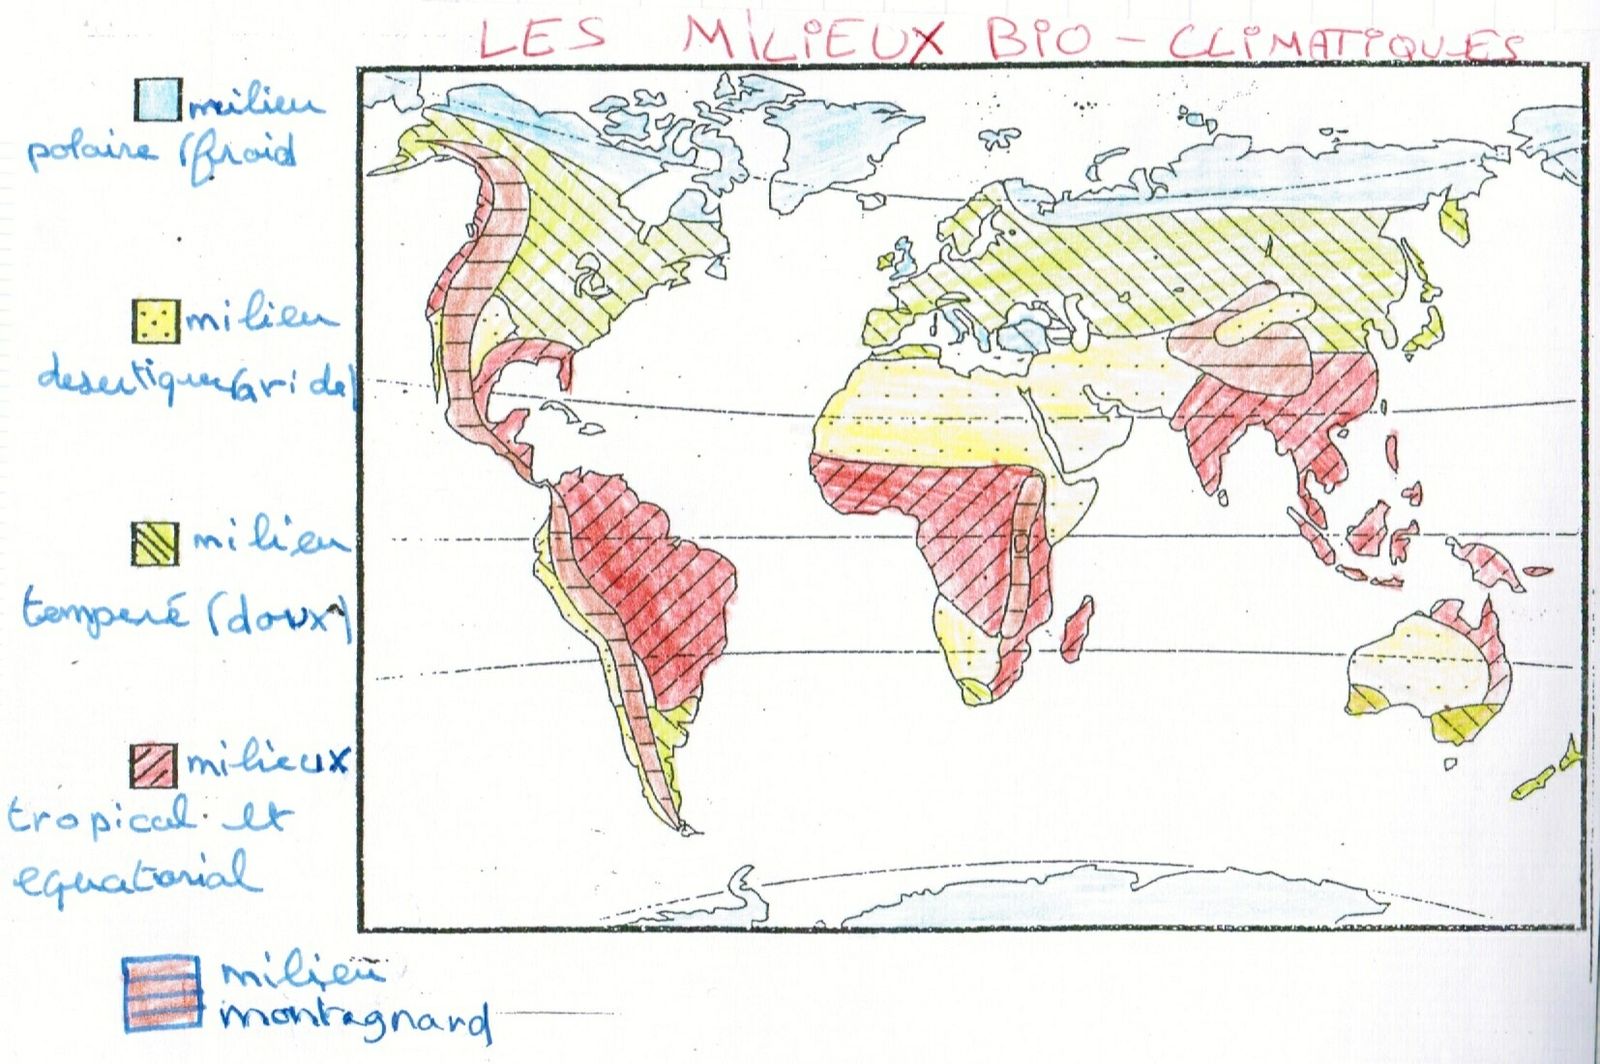 LES MILIEUX BIO - CLIMATIQUES
milieu
polaire (froid
milieu
desertique(aride)
milieu
temperé (doux)
milieux
tropical et
equatorial
milieu
montagnard